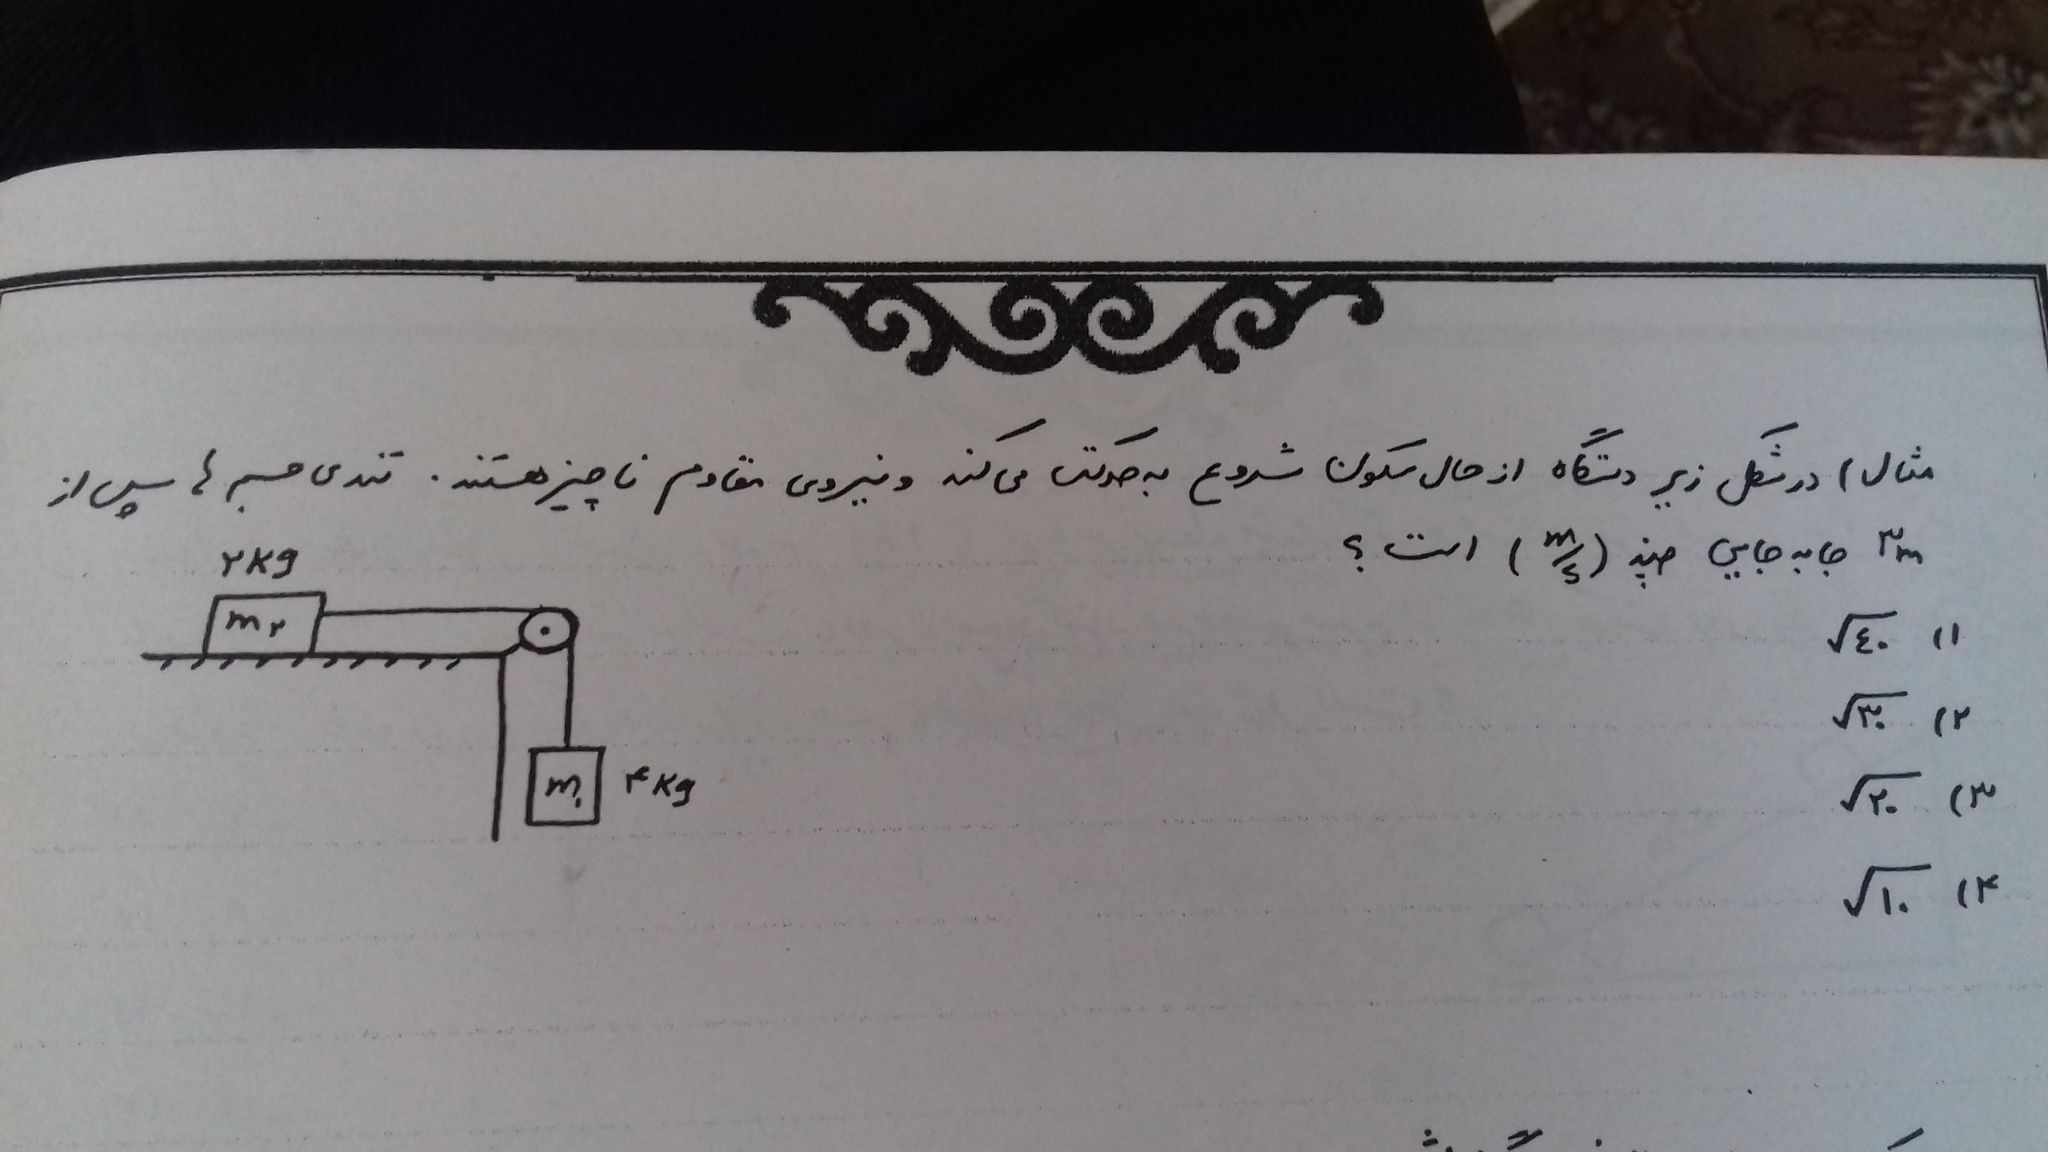 مثال) در شکل زیر دستگاه از حال سکون شروع به حرکت می کند و نیروی مقاوم ناچیز هستند. تندی جسم ها پس از
۳m جابه جایی چند (m/s) است؟
۱) √۴۰
۲) √۳۰
۳) √۲۰
۴) √۱۰
۲kg
m۲
m۱ ۴kg